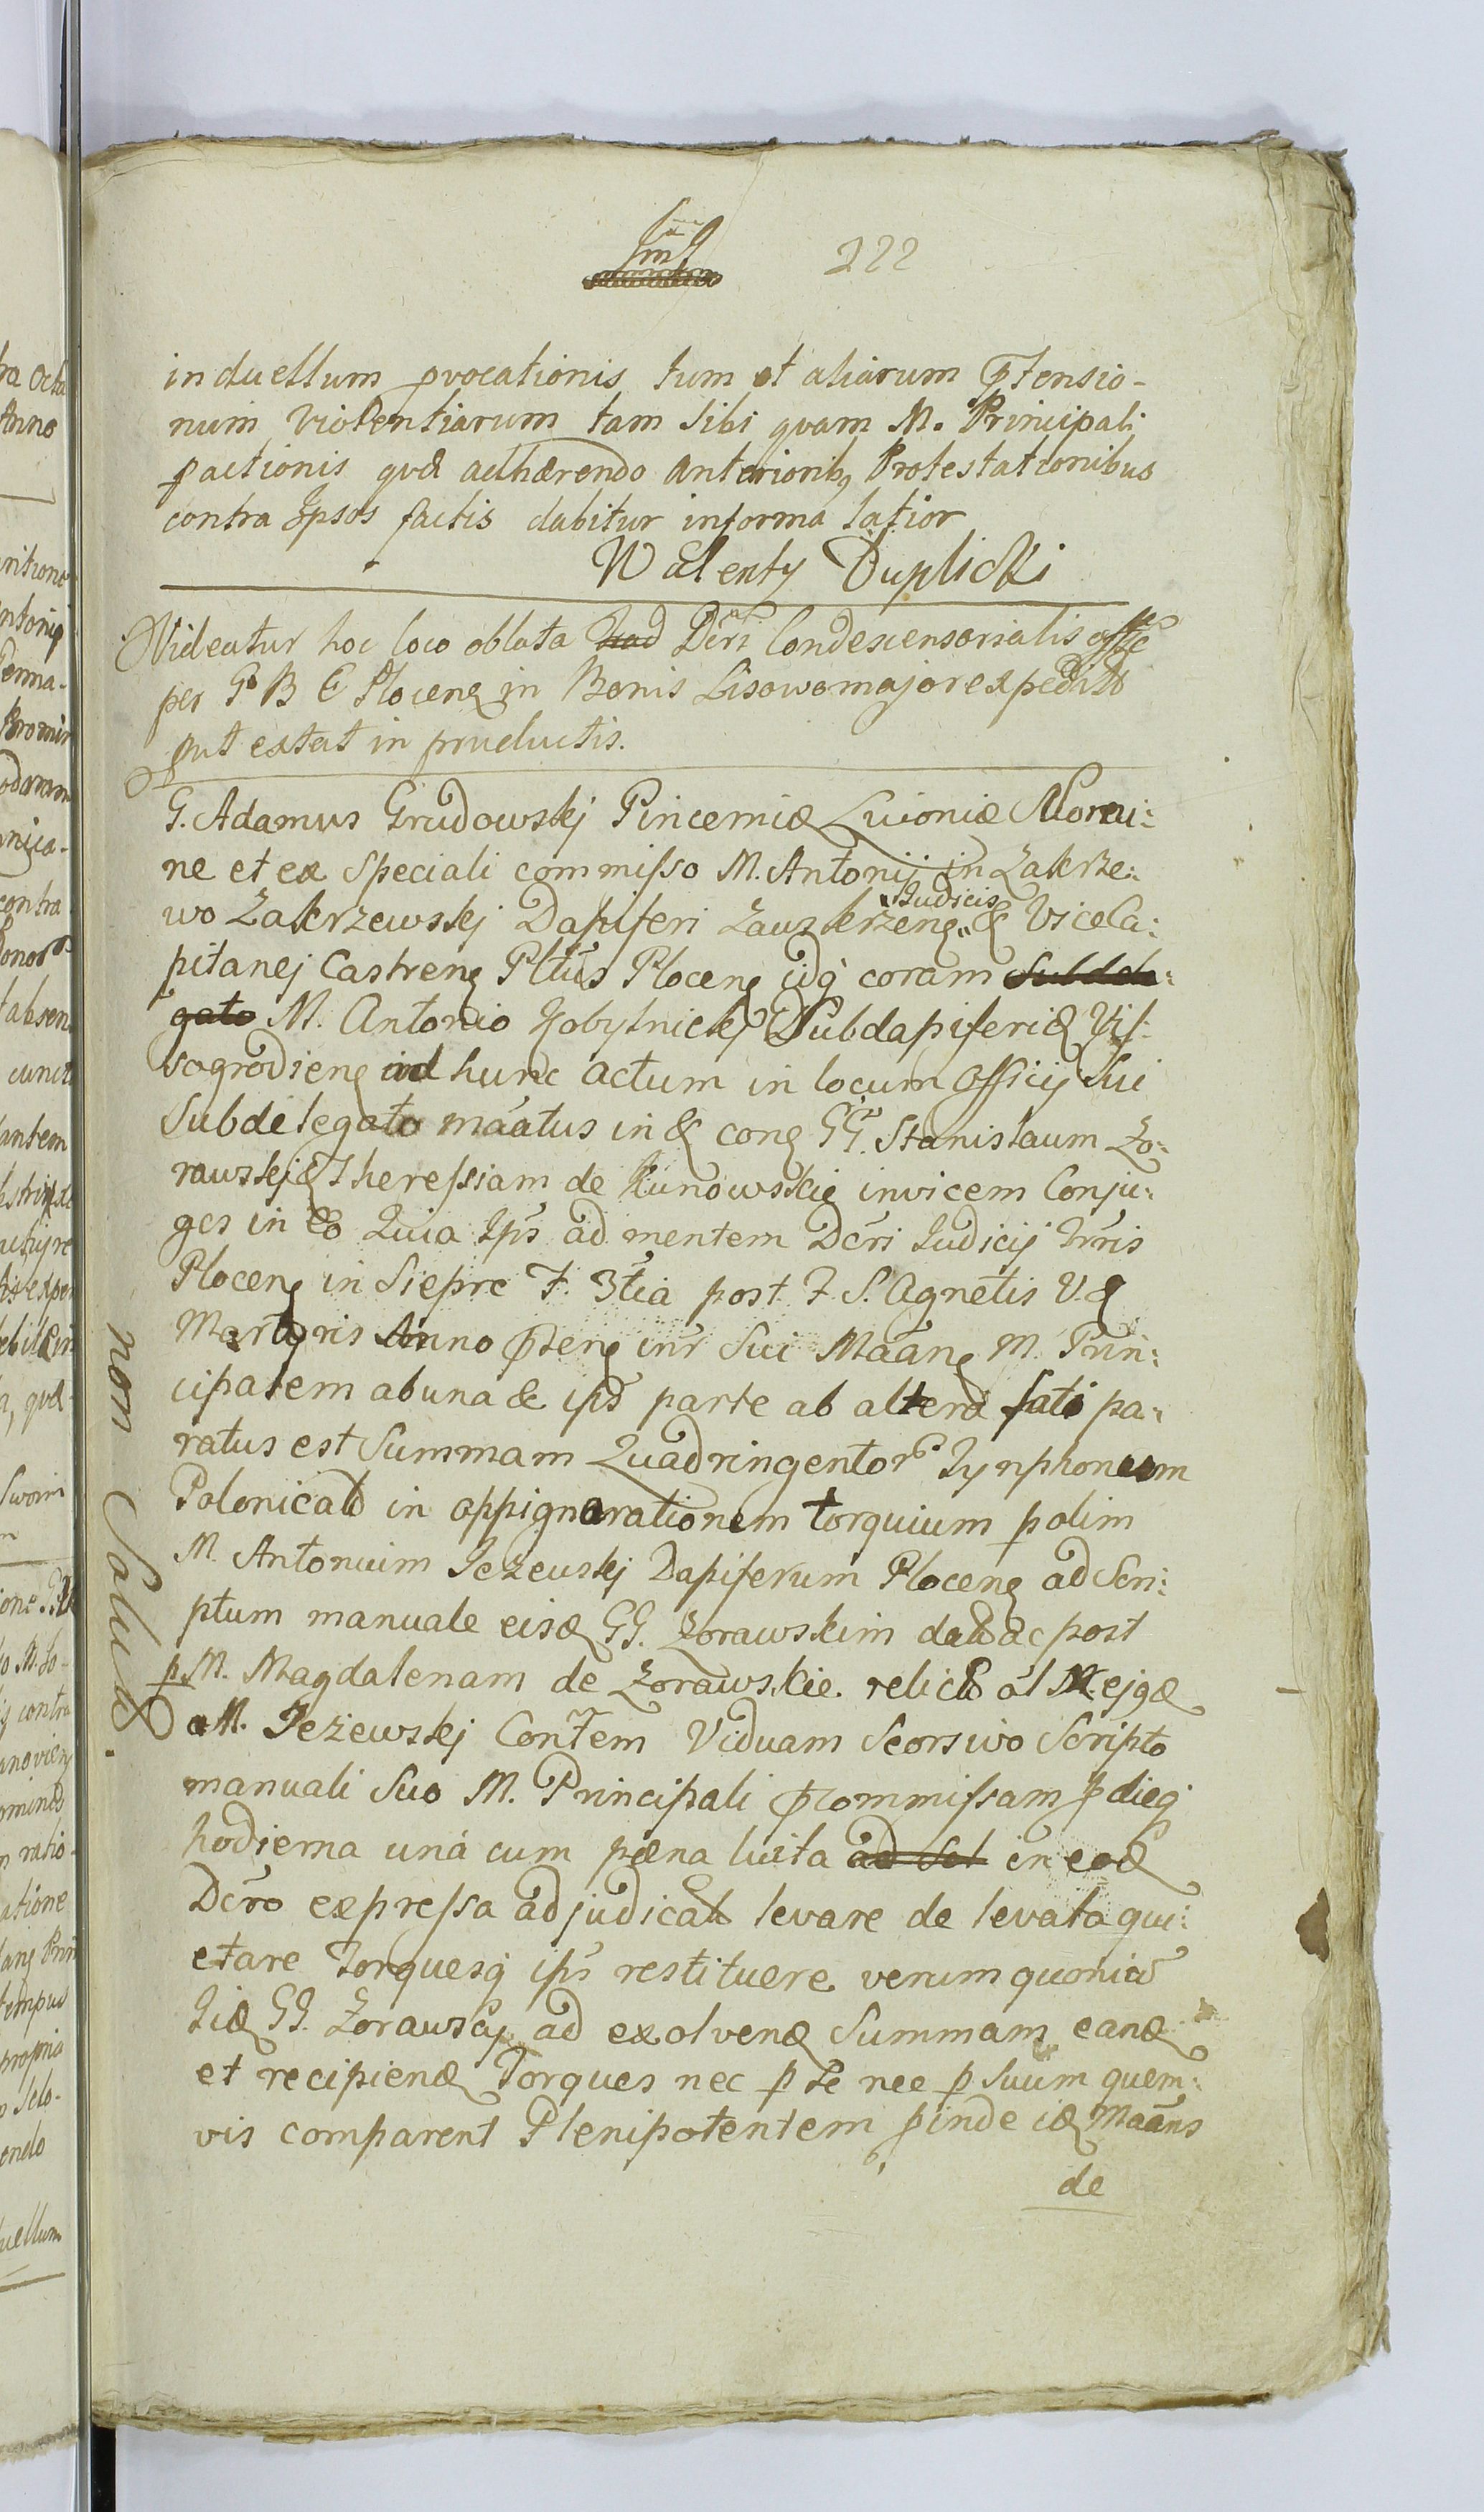 222
in duellum pvocationis tum et aliarum ptensio-
num violentiarum tam sibi quam M. Principali
pactionis qvæ adhærendo anteriorib9 Protestationibus
contra Ipsos factis dabitur in forma latior
Walenty Duplicki
Videatur hoc loco oblata Dcri Condescensorialis
per G B C Plocen in Bonis Lisowo major expedita
put extat in productis.
G. Adamus Grudowskj Pincernia Livoniæ Suo nōi:
ne et ex speciali commisso M. Antonij in Zakrze:
wo Zakrzewskj Dapiferi Zauskrzen. Judicis & Vice Ca:
pitanej Castren Pltus Plocen idq coram Subdele:
gato M. Antonio Kobylnickj Subdapiferi Vis:
sogrodien ad hunc actum in locum officij sui
subdelegato māatus in & con GG. Stanislaum Zo:
rawskj & Theressiam de Kunowskie invicem Conju:
ges in Eo Quia Ips ad mentem Dcri Judicij Trris
Plocen in Sieprc F. 3tia post F. S. Agnetis V. &
Martyris Anno pten intr sui Māan M. Prin:
cipalem ab una & ips parte ab altera fati pa:
ratus est summam Quadringentor Tynphonum
Polonical in oppignorationem torquium p olim
M. Antonium Jezewskj Dapiferum Plocen ad scri:
ptum manuale eisd GG. Zorawskim dat ac post
p M. Magdalenam de Zorawskie relict ol M. ejgd
M. Jeżewskj Contem Viduam seorsivo scripto
manuali suo M. Principali pcommissam p dieq
hodierna una cum pæna luita ad sol in eod
Dcro expressa adjudicat levare de levata qui:
etare Torquesq ips restituere verum quonia
Iid GG. Zorawscy ad exolvend summam eand
et recipiend Torques nec p se nec p suum quem:
vis comparent Plenipotentem pinde id Māans
de
non Solut.